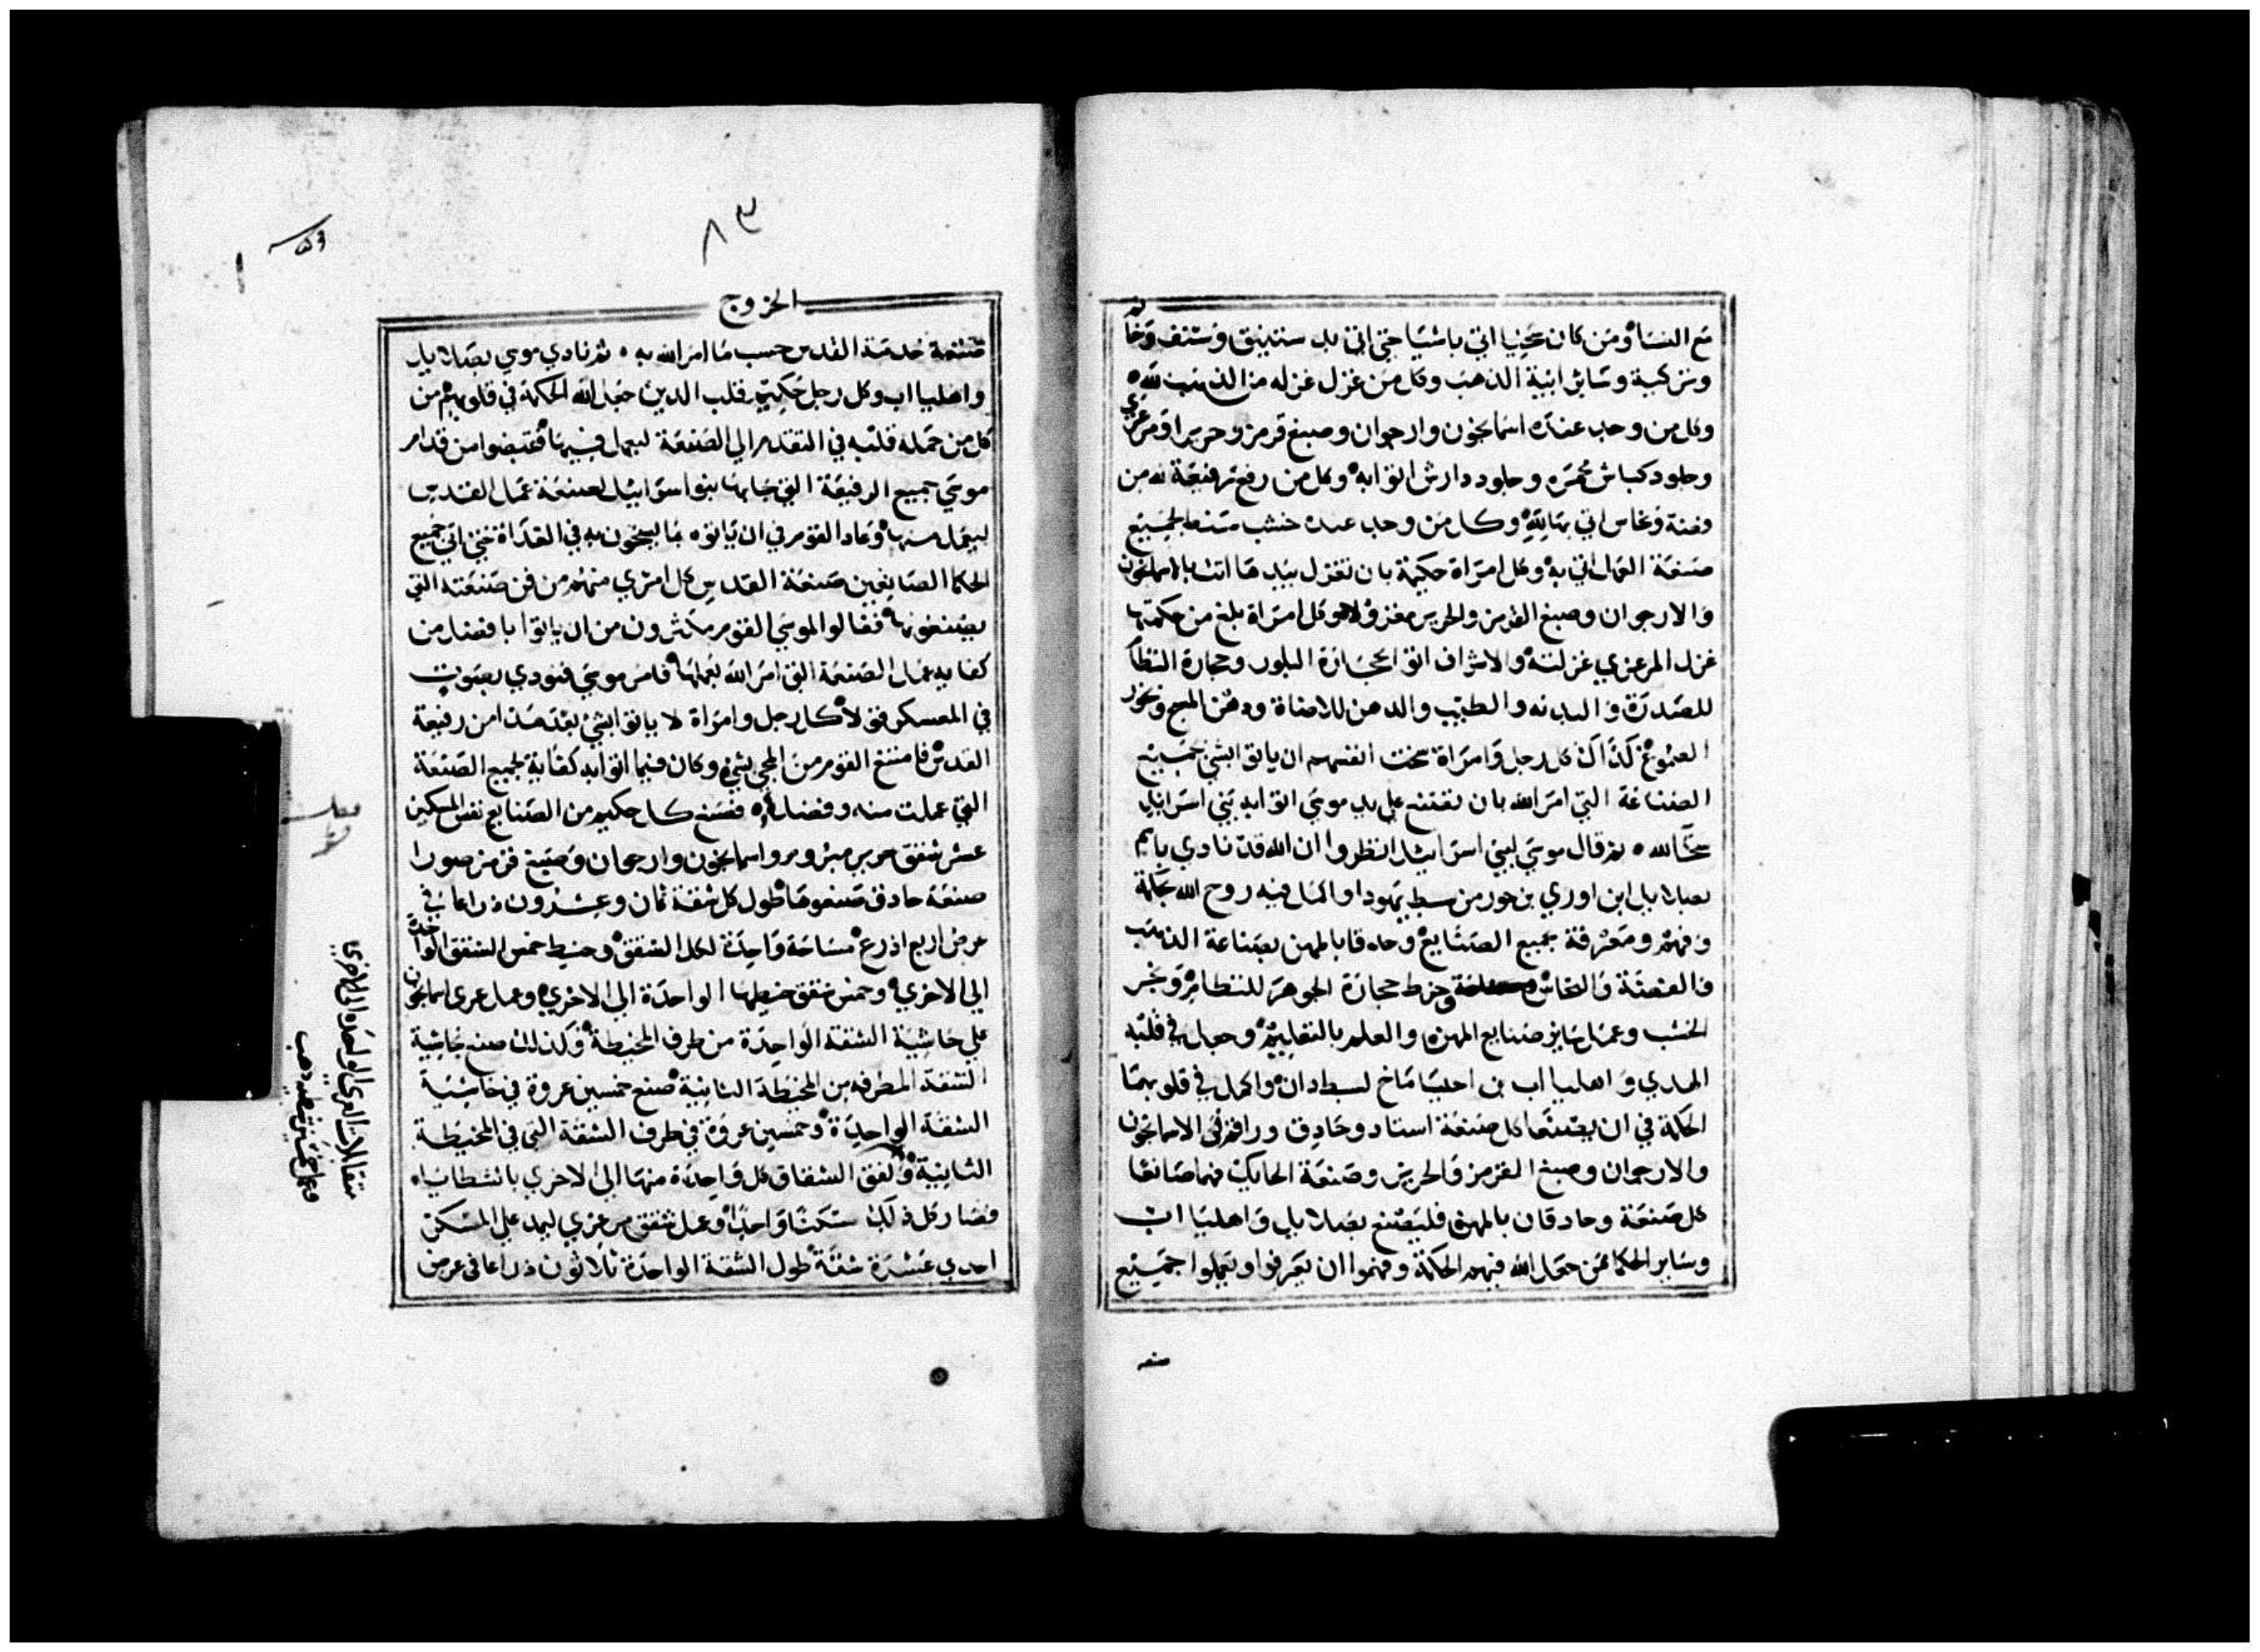 مع النسا ومن كان سخيا اتي باشيا حتي اتي بد ستينق وشنف وخاتم
وتركيبة وساير ابنية الذهب وكل من غزل غزله من الذهب لله ٥
وكل من وجد عنده اسمانجون وارجوان وصبغ قرمز وحريرا ومرعزي
وجلود كباش محمره وجلود دارش اتوا به وكل من رفع رفيعة لله من
وفضة ونحاس اتي بها لله وكل من وجد عنده خشب سنط لجميع
صنعة العمل اتي به وكل امراة حكيمة بان تغزل بيدها اتت بالاسمانجون
والارجوان وصبغ القرمز والحرير مغزولا وكل امراة بلغ من حكمتها
غزل المرعزي غزلته والاشراف اتوا بحجارة البلور وحجارة النظام
للصدرة والبدنه والطيب والدهن للاضاة ودهن المسح وبخور
الصموغ كذاك كل رجل وامراة سخت انفسهم ان ياتوا بشي لجميع
الصناعة التي امر الله بان تصنع علي يد موسي اتوا به بني اسراييل
سخا لله ٥ ثم قال موسي لبني اسراييل انظروا ان الله قد نادي باسم
بصلاييل ابن اوري بن حور من سبط يهودا واكمل فيه روح الله بحكمة
وفهم ومعرفة بجميع الصنايع وحادقا بالمهن بصناعة الذهب
والفضة والنحاس وخرط حجارة الجوهر للنظام ونجر
الخشب وعمل ساير صنايع المهن والعلم بالتعليم وجعل في قلبه
الهدي واهلياب بن احيساماخ لسبط دان واكمل في قلوبهما
الحكمة في ان يصنعا كل صنعة استاد وحادق وراقم في الاسمانجون
والارجوان وصبغ القرمز والحرير وصنعة الحايك فهما صانعا
كل صنعة وحادقان بالمهن فليصنع بصلاييل واهليا اب
وساير الحكما ممن جعل الله فيهم الحكمة وفهموا ان يعرفوا ويعملوا جميع
صنعه
٨٣
الخروج
صنعة خدمة القدس حسب ما امر الله به ٥ ثم نادي موسي بصلاييل
واهليا اب وكل رجل حكيم قلب الدين جعل الله الحكمة في قلوبهم من
كل من حمله قلبه في التقدم الي الصنعة ليعمل فيها فقبضوا من قدام
موسي جميع الرفيعة التي جابها بنوا اسراييل لصنعة عمل القدس
ليعمل منها وعاد القوم في ان ياتوه بما يسخون به في الغداة حتي اتي جميع
الحكما الصانعين صنعة القدس كل امري منهم من فن صنعته التي
يصنعونها فقالوا لموسي القوم مكثرون من ان ياتوا بافضل من
كفاية عمل الصنعة التي امر الله بعملها فامر موسي فنودي بصوت
في المعسكر قولا كل رجل وامراة لا ياتوا بشي بعد هذا من رفيعة
القدس فامتنع القوم من المجي بشي وكان فيما اتوا به كفاية لجميع الصنعة
التي عملت منه وفضل ٥ فصنع كل حكيم من الصنايع نفس المسكن
عشر شقق حرير مبروم واسمانجون وارجوان وصبغ قرمز صورا
صنعة حادق صنعوها طول كل شقة ثمان وعشرون ذراعا في
عرض اربع اذرع مساحة واحدة لكل الشقق وخيط خمس الشقق الواحدة
الي الاخري وخمس شقق خيطها الواحدة الي الاخري وعمل عري اسمانجون
علي حاشية الشقة الواحدة من طرف المخيطة وكذلك صنع بحاشية
الشقة المطرفه من المخيطة الثانية صنع خمسين عروة في حاشية
الشقة الواحدة وخمسين عروة في طرف الشقة التي في المخيطة
الثانية ولفق الشقاق كل واحدة منها الي الاخري بالشظايا ٥
فصار كل ذلك سكنا واحدا وعمل شقق مرعزي ليمد علي المسكن
احدي عشرة شقة طول الشقة الواحدة ثلاثون ذراعا في عرض